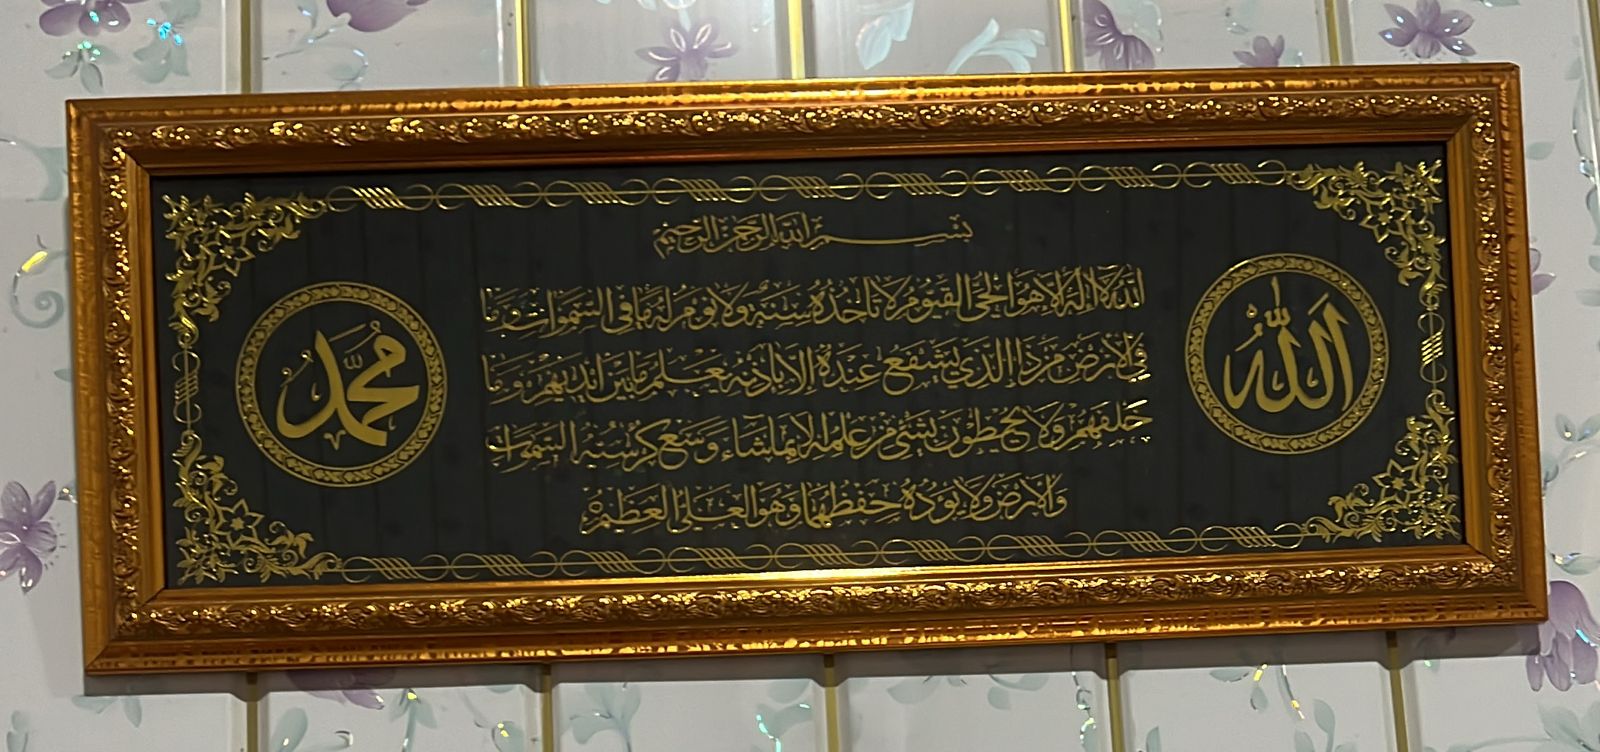 بسم الله الرحمن الرحيم
الله
اللهُ لَا إِلَهَ إِلَّا هُوَ الْحَيُّ الْقَيُّومُ لَا تَأْخُذُهُ سِنَةٌ وَلَا نَوْمٌ لَهُ مَا فِي السَّمَوَاتِ وَمَا
فِي الْأَرْضِ مَنْ ذَا الَّذِي يَشْفَعُ عِنْدَهُ إِلَّا بِإِذْنِهِ يَعْلَمُ مَا بَيْنَ أَيْدِيهِمْ وَمَا
خَلْفَهُمْ وَلَا يُحِيطُونَ بِشَيْءٍ مِنْ عِلْمِهِ إِلَّا بِمَا شَاءَ وَسِعَ كُرْسِيُّهُ السَّمَوَاتِ
وَالْأَرْضَ وَلَا يَؤُدُهُ حِفْظُهُمَا وَهُوَ الْعَلِيُّ الْعَظِيمُ
محمد